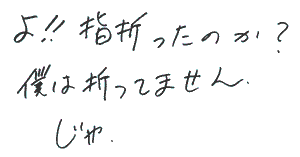 よ!! 指折ったのか?
僕は折ってません.
じゃ.